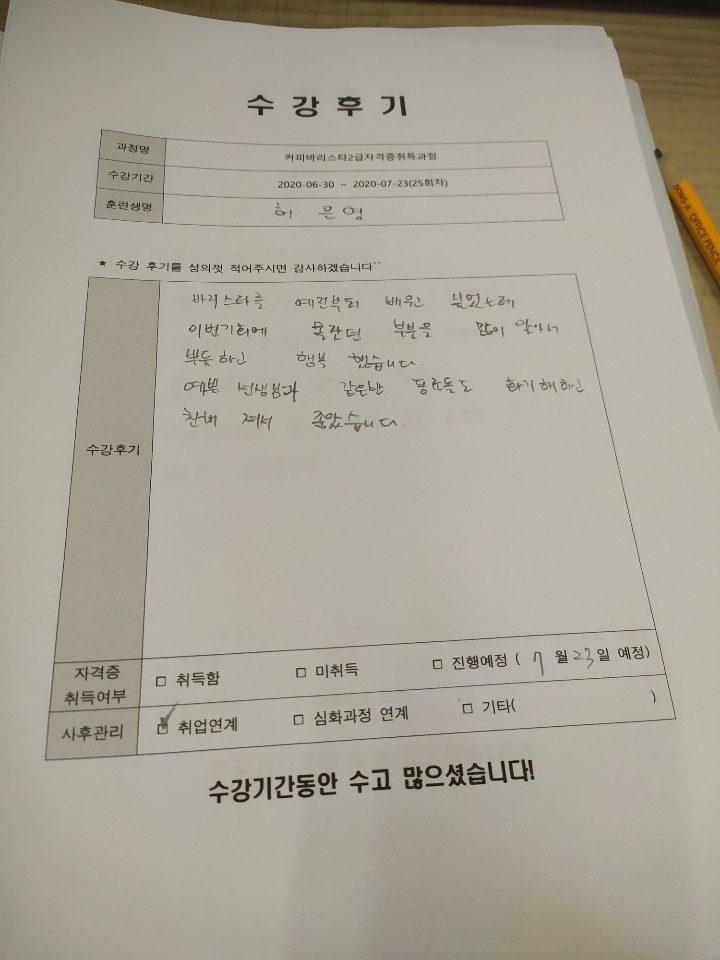 수 강 후 기
과정명 커피바리스타2급자격증취득과정
수강기간 2020-06-30 ~ 2020-07-23(25회차)
훈련생명 허 은영
★ 수강 후기를 성의껏 적어주시면 감사하겠습니다^^
바리스타를 예전부터 배워
이번기회에 몰랐던 부분을 많이 알아서
뿌듯하고 행복 했습니다.
예쁜 선생님과 같은반 동료들도 화기애하고
친해 져서 좋았습니다.
수강후기
자격증 취득여부 □ 취득함 □ 미취득 □ 진행예정 ( 7 월 23일 예정)
사후관리 □ 취업연계 □ 심화과정 연계 □ 기타( )
수강기간동안 수고 많으셨습니다!
DONG-A OFFICE PENCIL